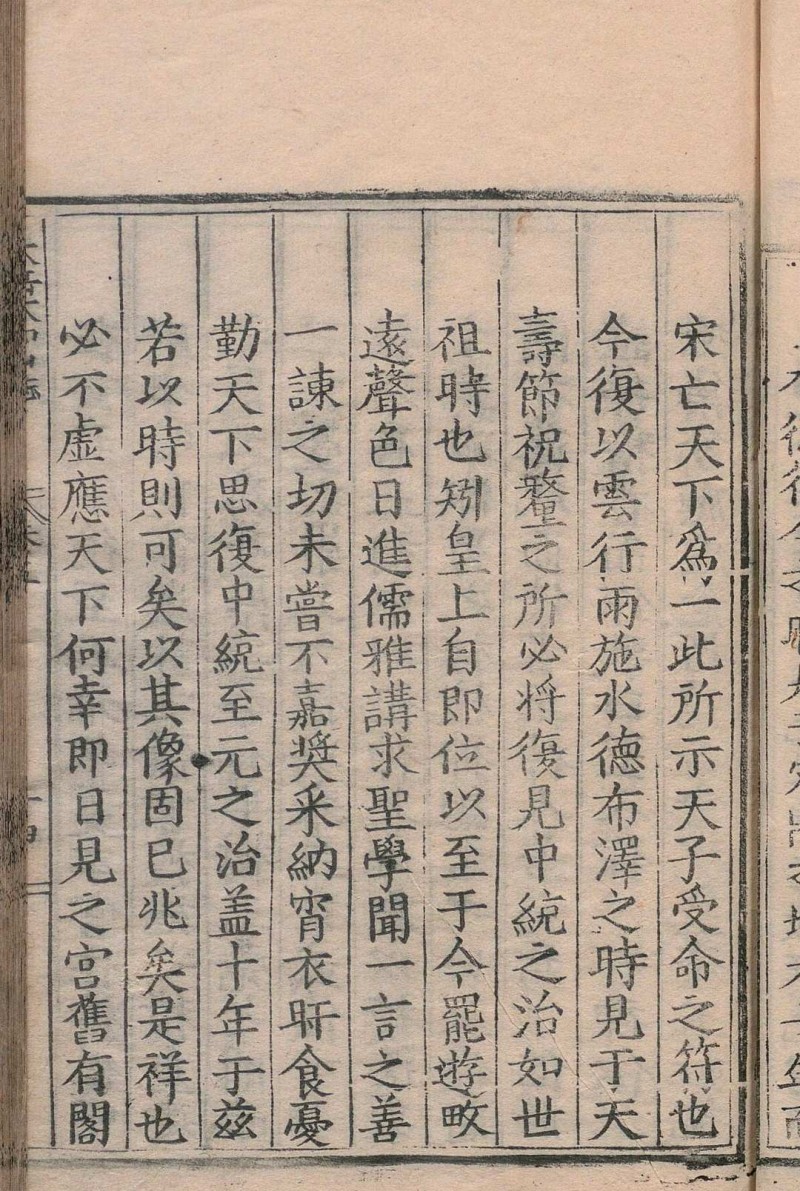 宋亡天下爲一此所示天子受命之符也
今復以雲行雨施水德布澤之時見于天
壽節祝釐之所必將復見中統之治如世
祖時也矧皇上自即位以至于今罷遊畋
遠聲色日進儒雅講求聖學聞一言之善
一諌之切未嘗不嘉奨采納宵衣旰食憂
勤天下思復中統至元之治盖十年于兹
若以時則可矣以其像固已兆矣是祥也
必不虚應天下何幸即日見之宫舊有閣